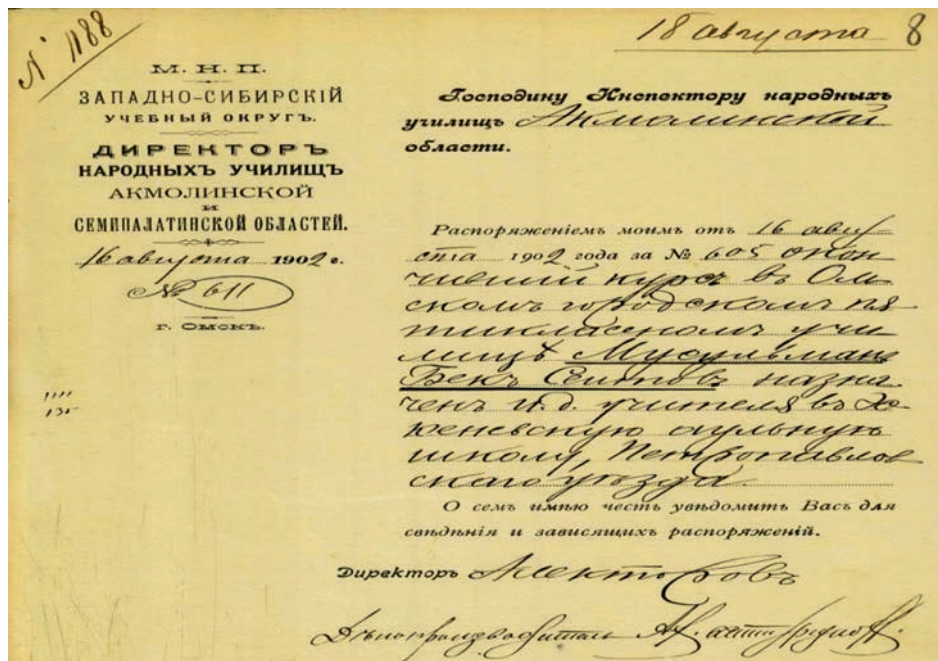 N 1188
18 августа 8
М. Н. П.
ЗАПАДНО-СИБИРСКІЙ
УЧЕБНЫЙ ОКРУГЪ.
ДИРЕКТОРЪ
НАРОДНЫХЪ УЧИЛИЩЪ
АКМОЛИНСКОЙ
И
СЕМИПАЛАТИНСКОЙ ОБЛАСТЕЙ.
16 августа 1902 г.
№ 611
Г. ОМСКЪ.
Господину Инспектору народныхъ
училищъ Акмолинской
области.
Распоряженіемъ моимъ отъ 16 авгу-
ста 1902 года за № 605 окон
чившій курсъ въ Ом
скомъ городскомъ пя
тиклассномъ учи
лищѣ Мусульман
Бекъ Сеитовъ назна
ченъ и.д. учителя въ
аульную
школу, Петропавлов
скаго уѣзда.
О семъ имѣю честь увѣдомить Васъ для
свѣдѣнія и зависящихъ распоряженій.
Директоръ Алекторовъ
Дѣлопроизводитель